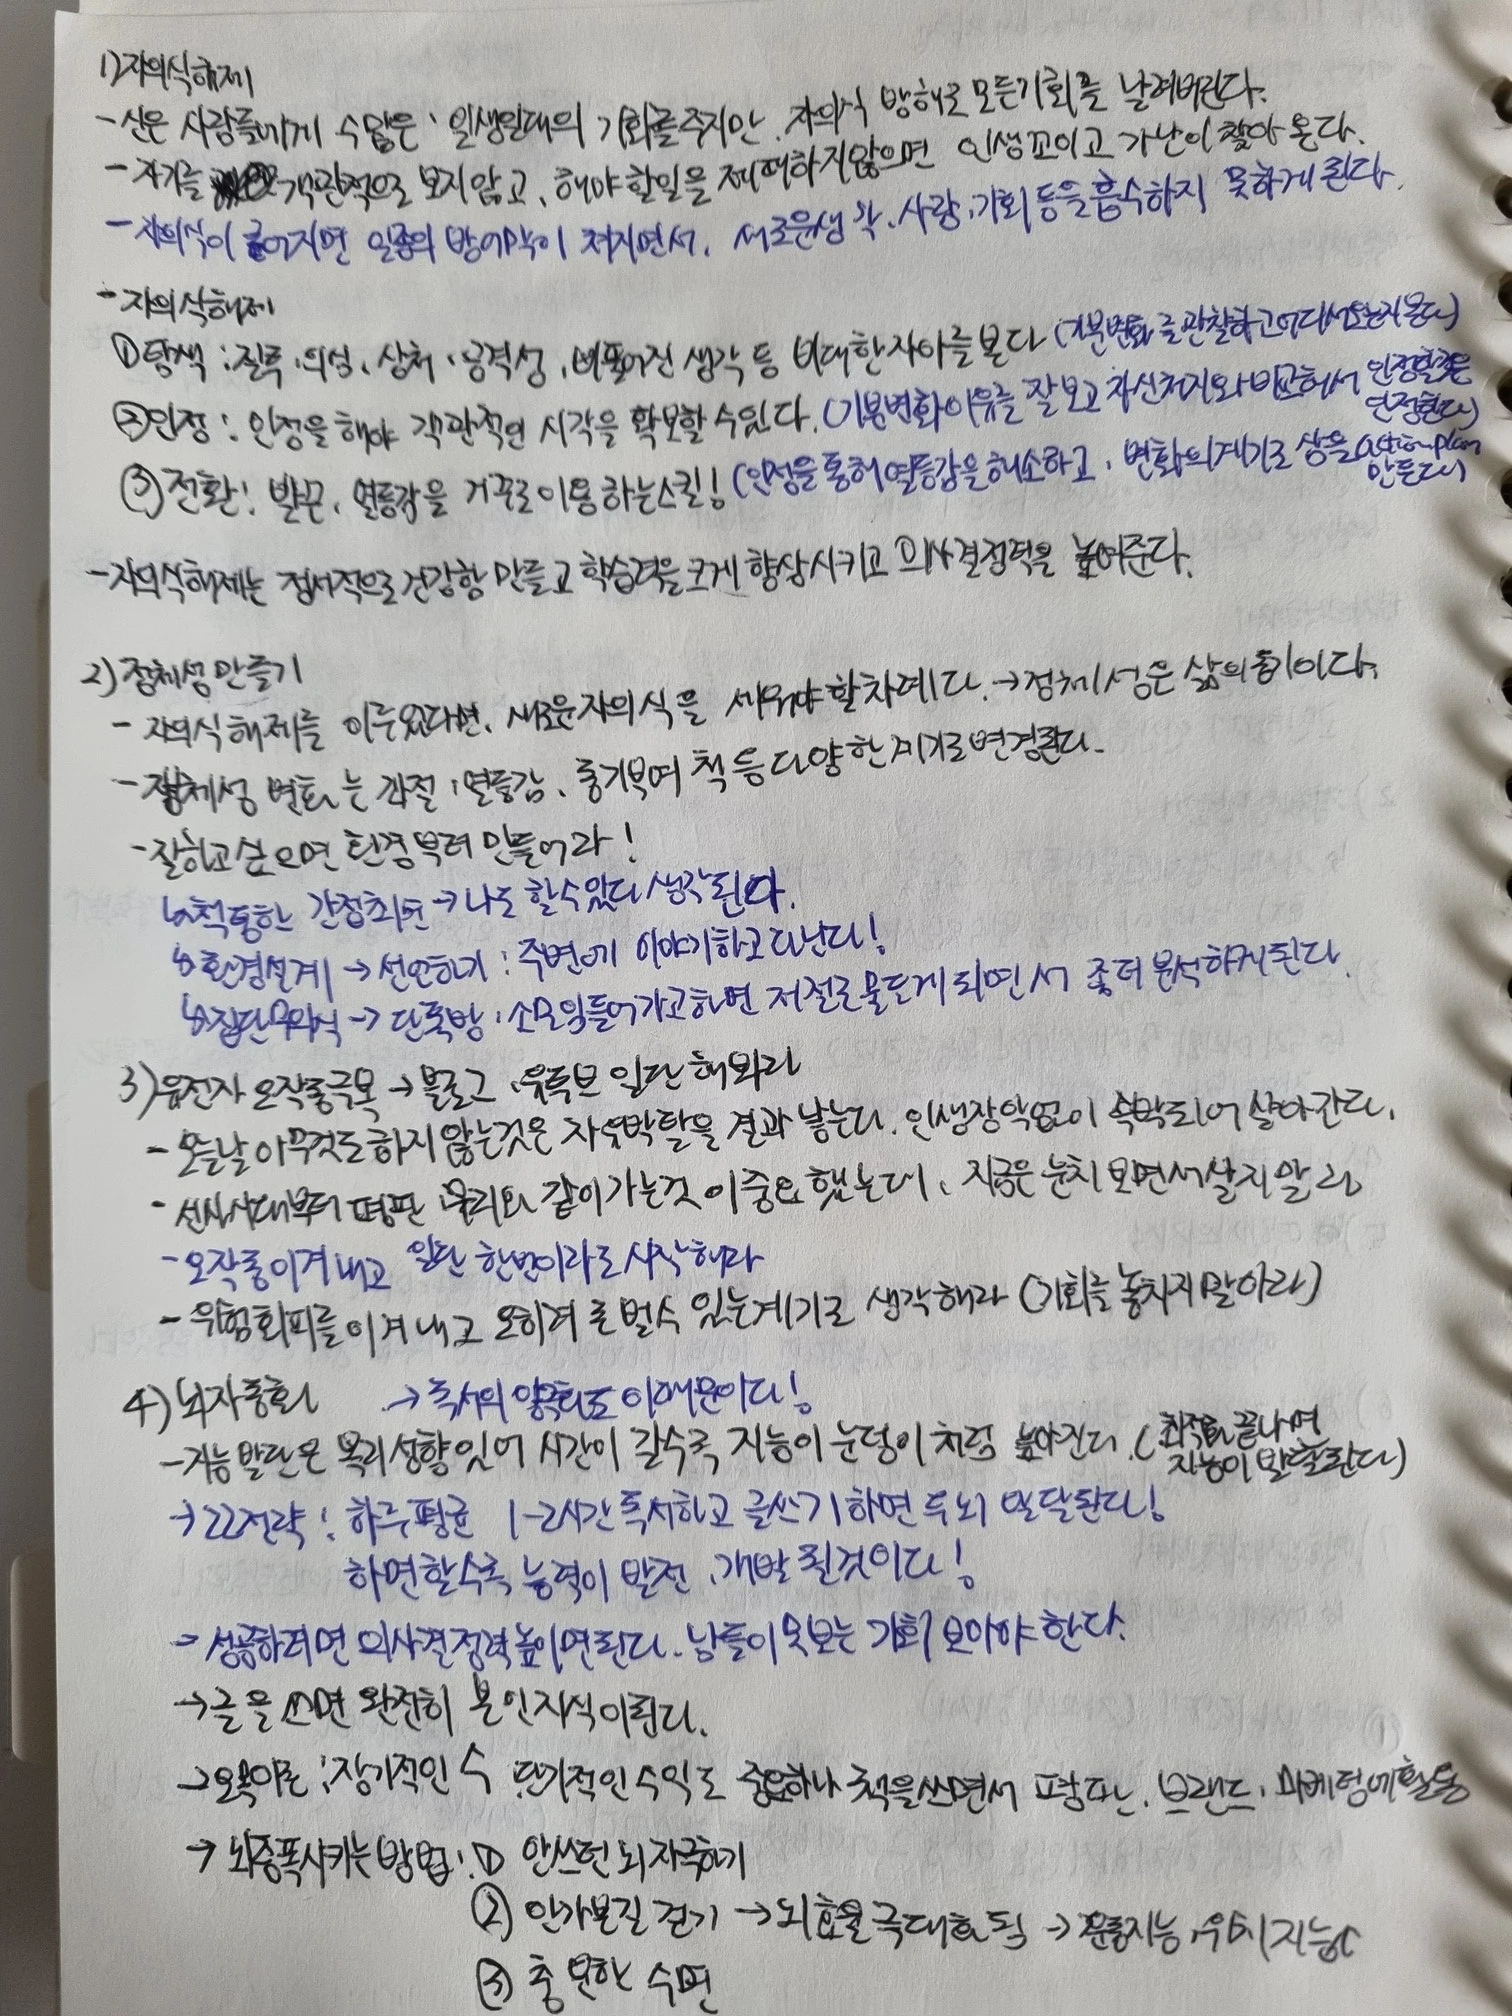 1) 자의식해제
- 신은 사람들에게 수많은 일생일대의 기회를주지만, 자의식 방해로 모든기회를 날려버린다.
- 자기를 객관적으로 보지않고, 해야 할일을 제대하지않으면 인생꼬이고 가난이 찾아 온다.
- 자의식이 지면 일종의 방어막이 쳐지면서, 새로운생각, 사람, 기회 등을 흡수하지 못하게 된다.
- 자의식해제
① 탐색 : 질투, 의심, 상처, 공격성, 생각 등 비대한자아를 본다 (기분변화를관찰하고어디서오는지본다)
② 인정 : 인정을 해야 객관적인 시각을 확보할 수있다. (기분변화이유를 잘보고 자신처지와비교해서 인정할것은
인정한다)
③ 전환! 발끈, 열등감을 거꾸로이용하는스킬! (인정을통해열등감을해소하고, 변화의계기로 삼을 action plan
만든다)
- 자의식해제는 정서적으로건강함 만들고 학습력을크게향상시키고 의사결정력을 높여준다.
2) 정체성만들기
- 자의식해제를 이루었다면, 새로운자의식을 세워야할차례다. → 정체성은 삶의동기이다.
- 정체성 변화는 좌절, 열등감, 동기부여 책등 다양한계기로변경된다.
- 잘하고싶으면 환경부터 만들어라!
↳ 책통한 간접최면 → 나도 할수있다 생각된다.
↳ 환경설계 → 선언하기 : 주변에 이야기하고다닌다!
↳ 집단무의식 → 단톡방, 소모임들어가고하면 저절로물들게되면서 좀더 분석하게된다.
3) 유전자 오작동극복 → 블로그, 유튜브 일단해봐라
- 오늘날아무것도하지않는것은 자유박탈을 결과 낳는다. 인생장악없이 속박되어 살아간다.
- 선사시대부터 평판 무리와 같이가는것이중요했는데, 지금은 눈치 보면서살지말라
- 오작동이겨내고 일단 한번이라도시작해라
- 위험회피를이겨내고 오히려 돈벌수 있는계기로 생각해라 (기회를놓치지말아라)
4) 뇌자동화 → 독서의 양극화도 이때문이다!
- 지능발달은 복리성향있어 시간이 갈수록 지능이 눈덩이처럼 높아진다. (최적화끝나면
지능이발달된다)
→ 22전략 : 하루평균 1-2시간독서하고 글쓰기하면 두뇌 발달된다!
하면할수록 능력이 발전, 개발 될것이다!
→ 성공하려면 의사결정력높이면된다. 남들이못보는 기회 보아야한다.
→ 글을쓰면 완전히 본인지식이된다.
→ 오목이론 : 장기적인 수 단기적인수익도 중요하나 책을쓰면서 브랜드, 마케팅에활용
→ 뇌증폭시키는방법 : ① 안쓰던 뇌자극하기
② 안가본길 걷기 → 뇌효율극대화됨 → 운동지능, 위치지능
③ 충분한 수면